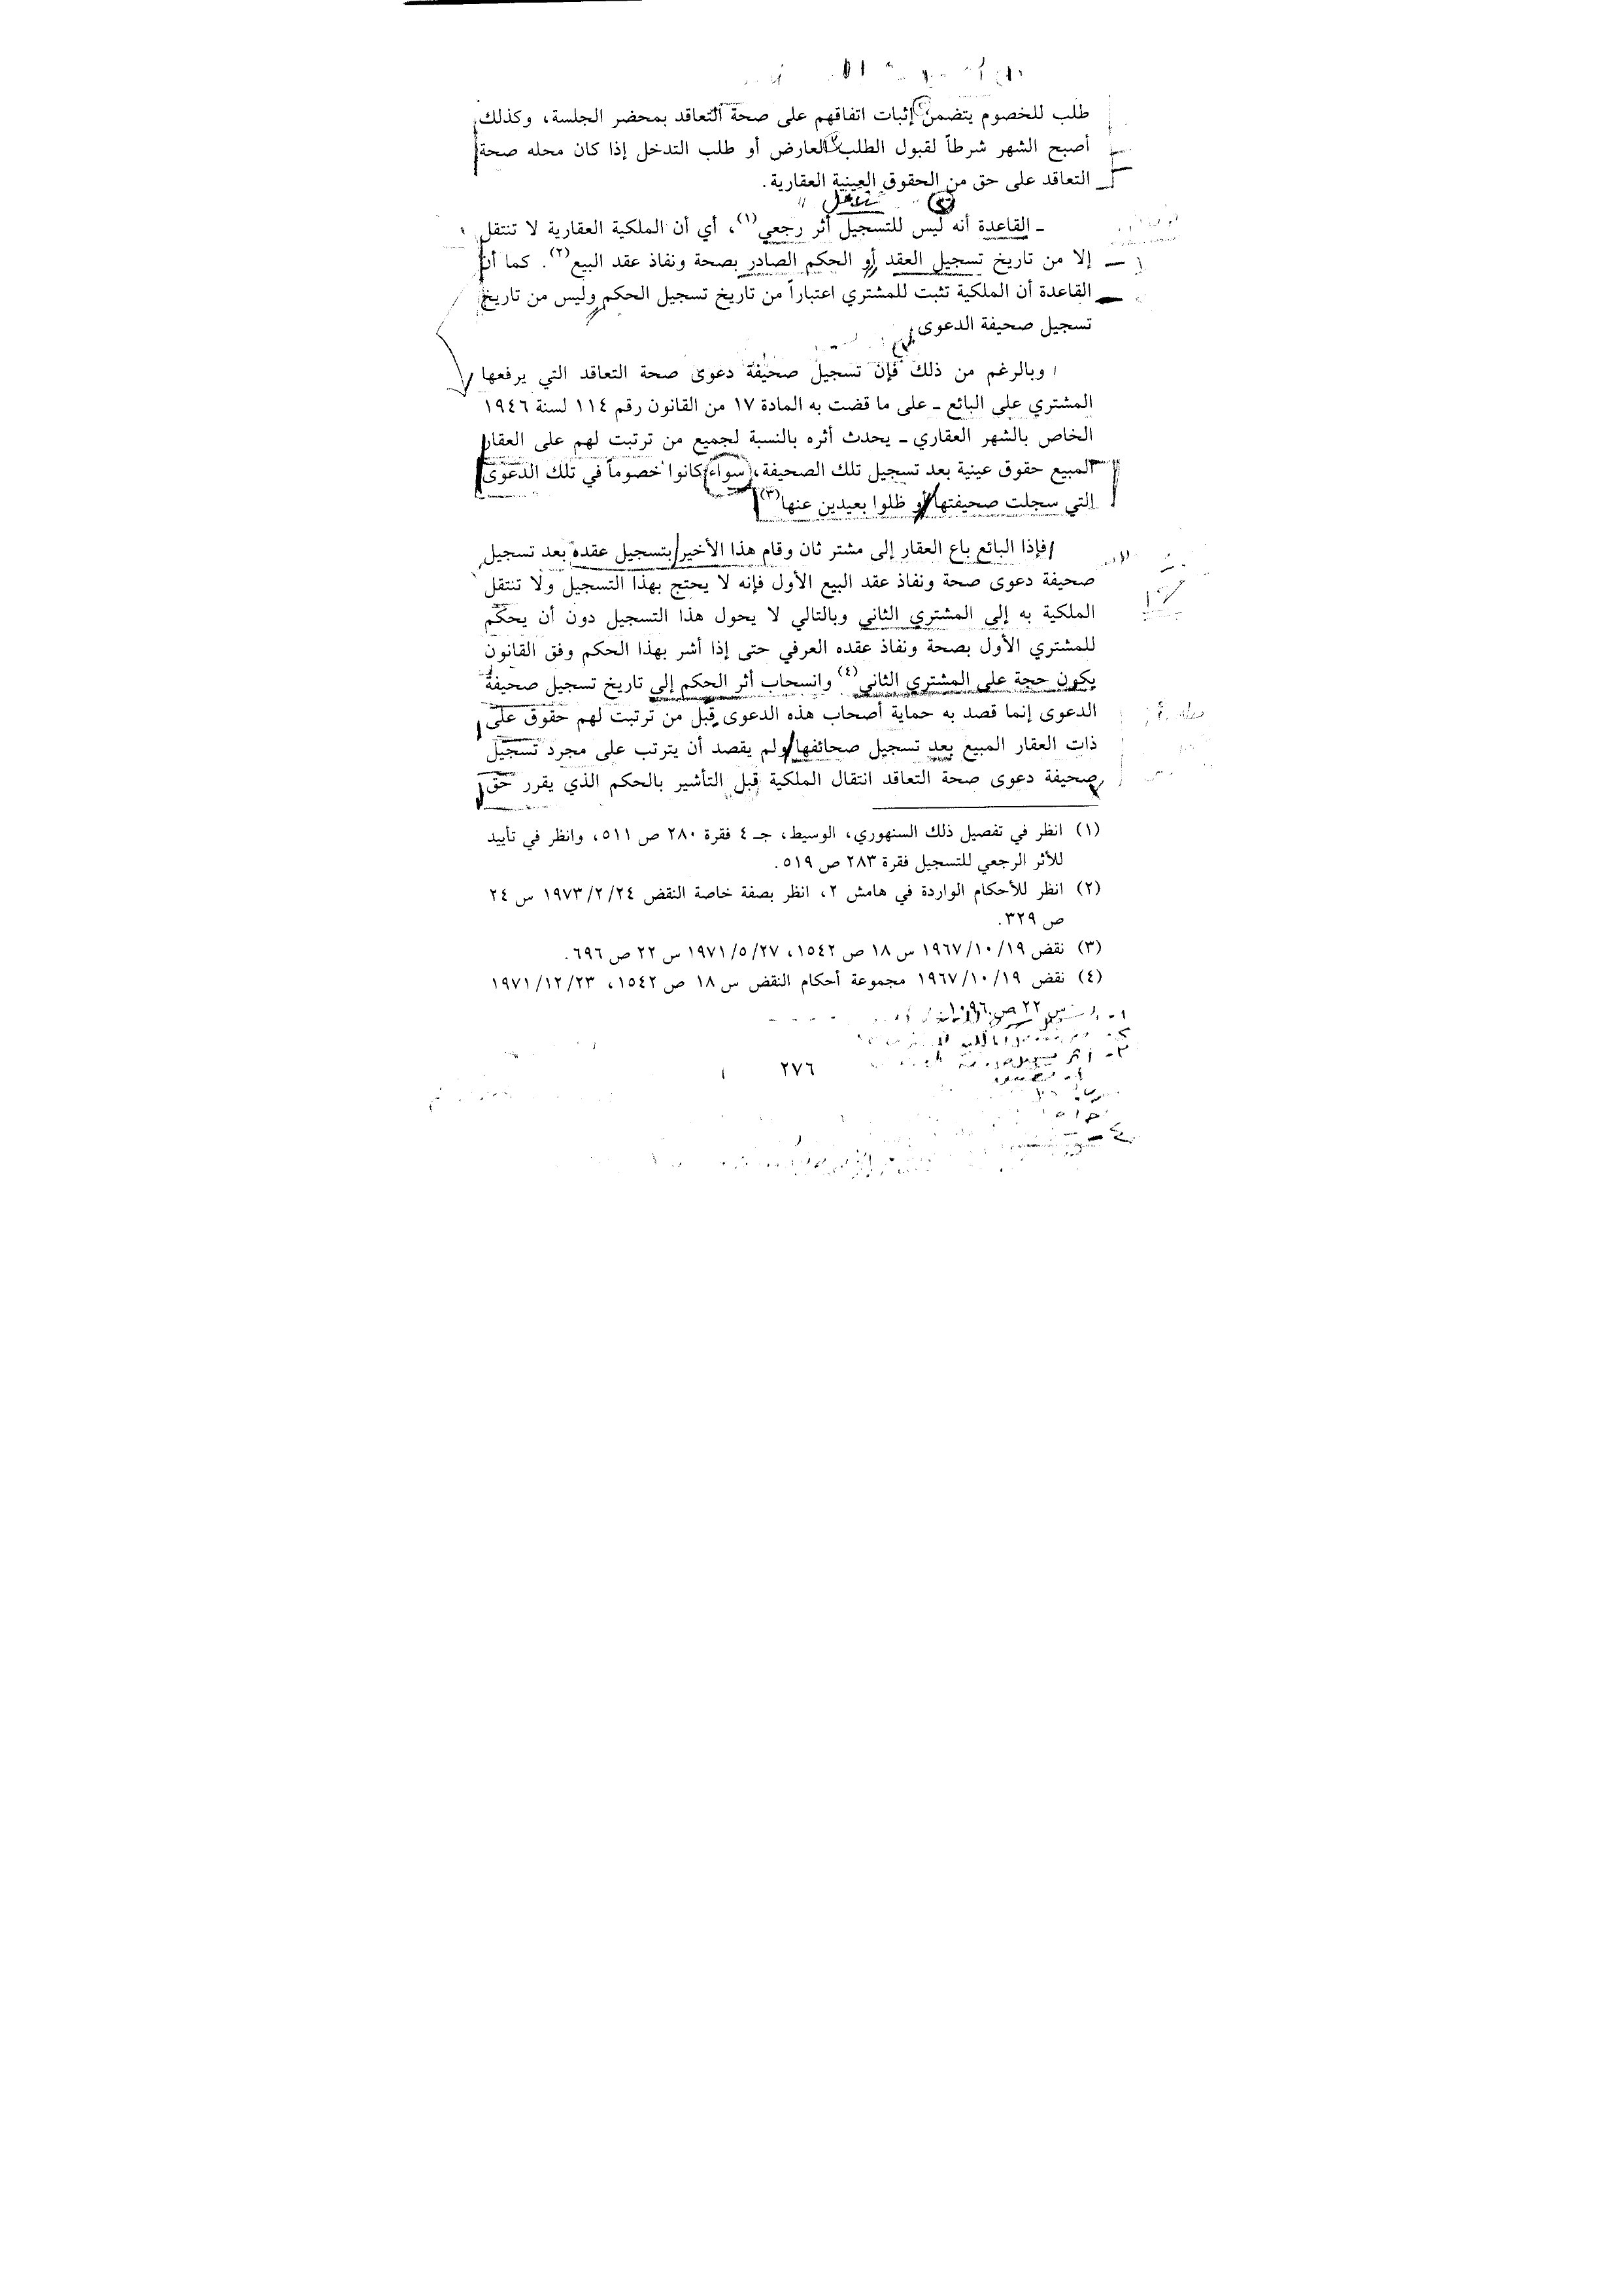 طلب للخصوم يتضمن إثبات اتفاقهم على صحة التعاقد بمحضر الجلسة، وكذلك
أصبح الشهر شرطاً لقبول الطلب العارض أو طلب التدخل إذا كان محله صحة
التعاقد على حق من الحقوق العينية العقارية.
ـ القاعدة أنه ليس للتسجيل أثر رجعي(١)، أي أن الملكية العقارية لا تنتقل
إلا من تاريخ تسجيل العقد أو الحكم الصادر بصحة ونفاذ عقد البيع(٢). كما أن
القاعدة أن الملكية تثبت للمشتري اعتباراً من تاريخ تسجيل الحكم وليس من تاريخ
تسجيل صحيفة الدعوى
وبالرغم من ذلك فإن تسجيل صحيفة دعوى صحة التعاقد التي يرفعها
المشتري على البائع ـ على ما قضت به المادة ١٧ من القانون رقم ١١٤ لسنة ١٩٤٦
الخاص بالشهر العقاري ـ يحدث أثره بالنسبة لجميع من ترتبت لهم على العقار
المبيع حقوق عينية بعد تسجيل تلك الصحيفة، سواء كانوا خصوماً في تلك الدعوى
التي سجلت صحيفتها أو ظلوا بعيدين عنها(٣)
فإذا البائع باع العقار إلى مشتر ثان وقام هذا الأخير بتسجيل عقده بعد تسجيل
صحيفة دعوى صحة ونفاذ عقد البيع الأول فإنه لا يحتج بهذا التسجيل ولا تنتقل
الملكية به إلى المشتري الثاني وبالتالي لا يحول هذا التسجيل دون أن يحكم
للمشتري الأول بصحة ونفاذ عقده العرفي حتى إذا أشر بهذا الحكم وفق القانون
يكون حجة على المشتري الثاني(٤) وانسحاب أثر الحكم إلى تاريخ تسجيل صحيفة
الدعوى إنما قصد به حماية أصحاب هذه الدعوى قبل من ترتبت لهم حقوق على
ذات العقار المبيع بعد تسجيل صحائفها ولم يقصد أن يترتب على مجرد تسجيل
صحيفة دعوى صحة التعاقد انتقال الملكية قبل التأشير بالحكم الذي يقرر حق
(١) انظر في تفصيل ذلك السنهوري، الوسيط، جـ ٤ فقرة ٢٨٠ ص ٥١١، وانظر في تأييد
للأثر الرجعي للتسجيل فقرة ٢٨٣ ص ٥١٩.
(٢) انظر للأحكام الواردة في هامش ٢، انظر بصفة خاصة النقض ١٩٧٣/٢/٢٤ س ٢٤
ص ٣٢٩.
(٣) نقض ١٩٦٧/١٠/١٩ س ١٨ ص ١٥٤٢، ١٩٧١/٥/٢٧ س ٢٢ ص ٦٩٦.
(٤) نقض ١٩٦٧/١٠/١٩ مجموعة أحكام النقض س ١٨ ص ١٥٤٢، ١٩٧١/١٢/٢٣
س ٢٢ ص
٢٧٦